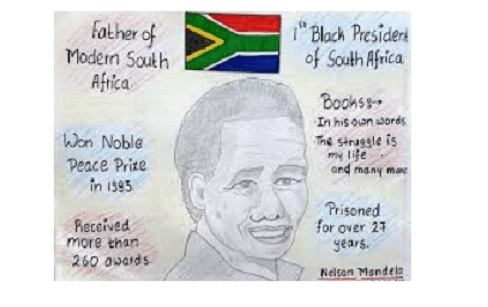 Father of
Modern South
Africa
1st Black President
of South Africa
Won Noble
Peace Prize
in 1993
Received
more than
260 awards
Books:→
In his own words
The struggle is
my life
and many more
Prisoned
for over 27
years.
Nelson Mandela